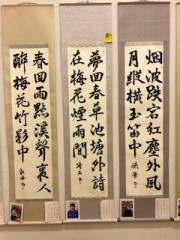 烟波跌宕红塵外風
月縱横玉笛中
夢回春草池塘外詩
在梅花煙雨間
春回雨點溪聲裏人
醉梅花竹影中